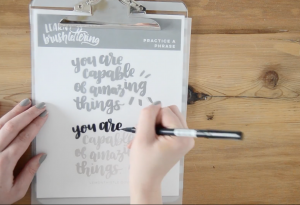 learn
brushlettering
PRACTICE A
PHRASE
you are
capable
of amazing
things
you are
capable
of amazing
things